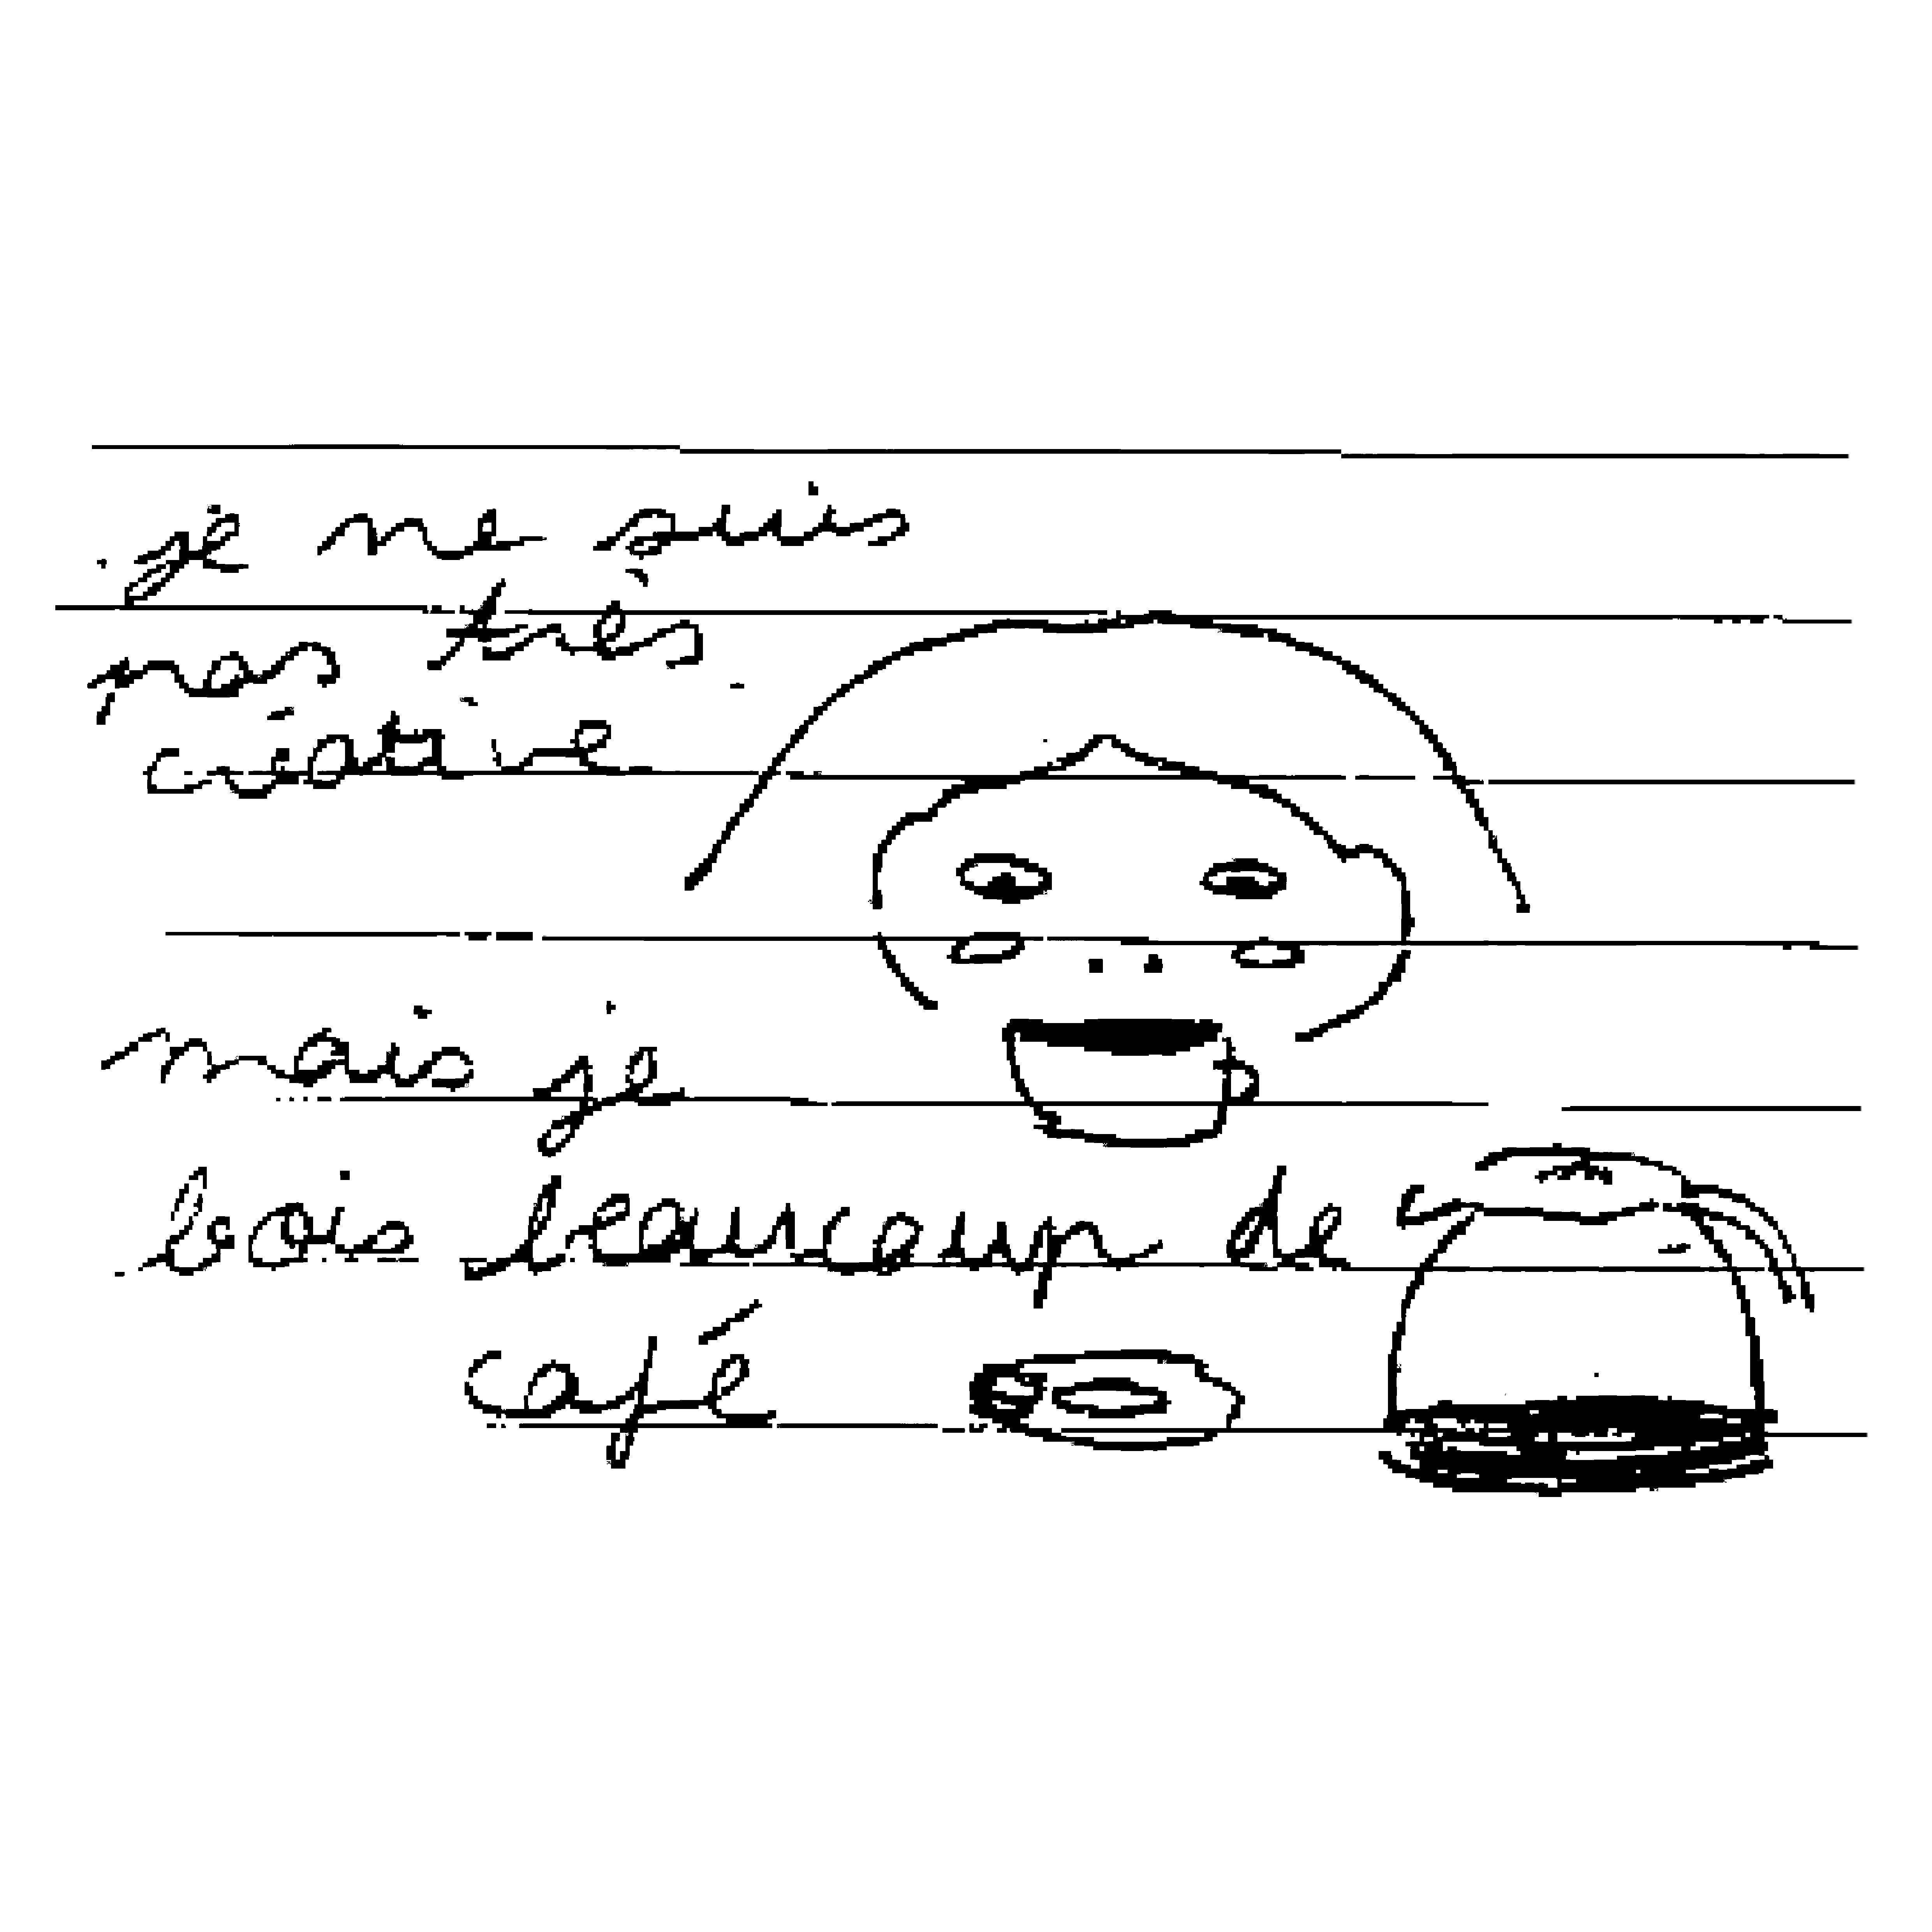 je ne suis
pas très
créative
mais je
bois beaucoup de
café